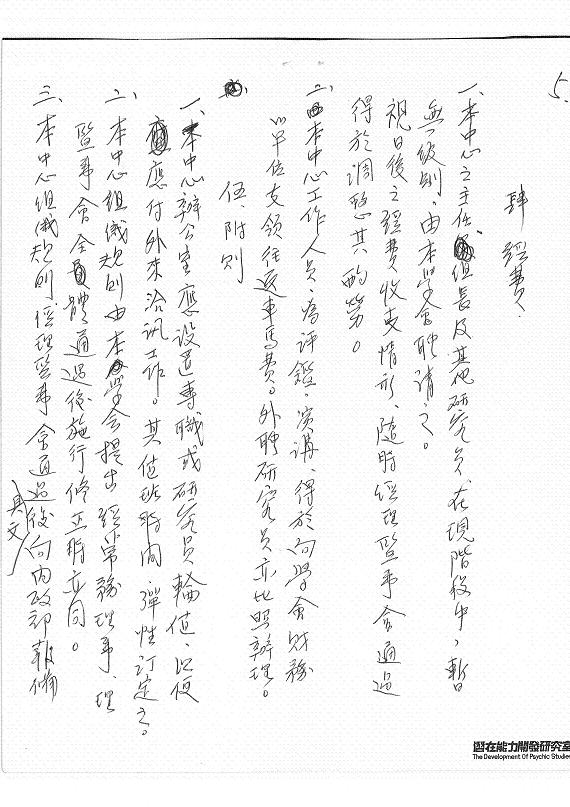 5.
肆、經費、
一、本中心之主任、組長及其他研究員、在現階段中，暫
無級別，由本學會聘請之。
視日後之經費收支情形、隨時經理監事會通過
得於調整其酌勞。
二、本中心工作人員、為評鑑、演講、得於向學會財務
以單位支領往返車馬費。外聘研究員亦比照辦理。
伍、附則
一、本中心辦公室應設置專職或研究員輪值、以便
應付外來洽訊工作。其值班時間彈性訂定之。
二、本中心組織規則由本學會提出經常務理事、理
監事會全體通過後施行修正時亦同。
三、本中心組織規則經理監事會通過後向內政部報備
具文
潛在能力開發研究室
The Development Of Psychic Studies